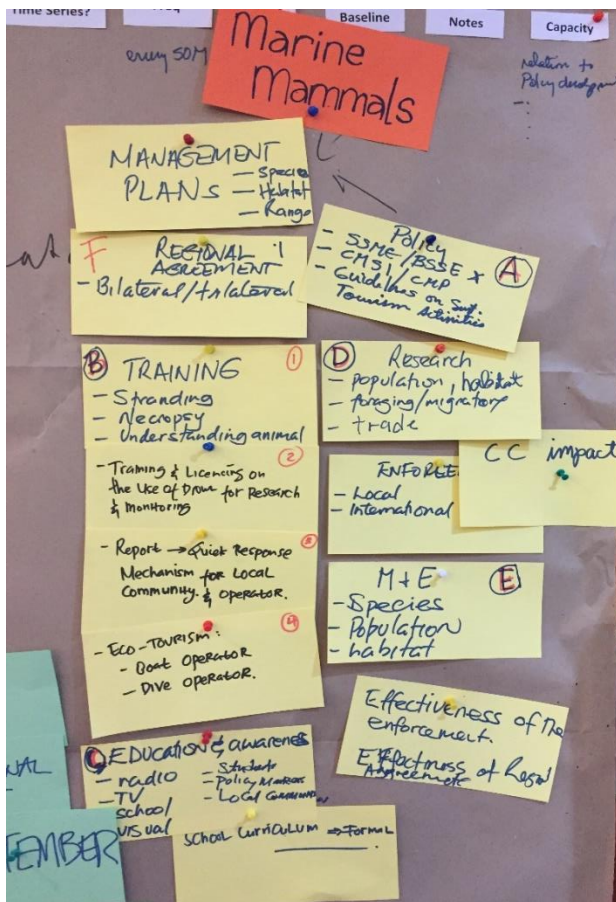 Time Series?
Baseline
Notes
Capacity
every SOM
relation to
Policy
Marine
Mammals
MANAGEMENT
PLANS
- Species
- Habitat
- Range
F
REGIONAL
AGREEMENT
- Bilateral/trilateral
Policy
A
- SSME/BSSE
- CMSI/CMP
- Guidelines on
Tourism Activities
B
TRAINING
1
- Stranding
- Necropsy
- Understanding animal
2
- Training & Licencing on
the Use of Drone for Research
& Monitoring
3
- Report → Quick Response
Mechanism for Local
Community. & OPERATOR.
4
- ECO-TOURISM:
- BOAT OPERATOR
- DIVE OPERATOR.
D
Research
- population, habitat
- foraging/migratory
- trade
CC impact
- Local
- International
M+E
E
- Species
- Population
- habitat
Effectiveness of the
enforcement.
C
EDUCATION & awareness
- radio
- TV
school
visual
- Students
- Policy Makers
- Local
SCHOOL CURRICULUM ⇒ FORMAL
TEMBER